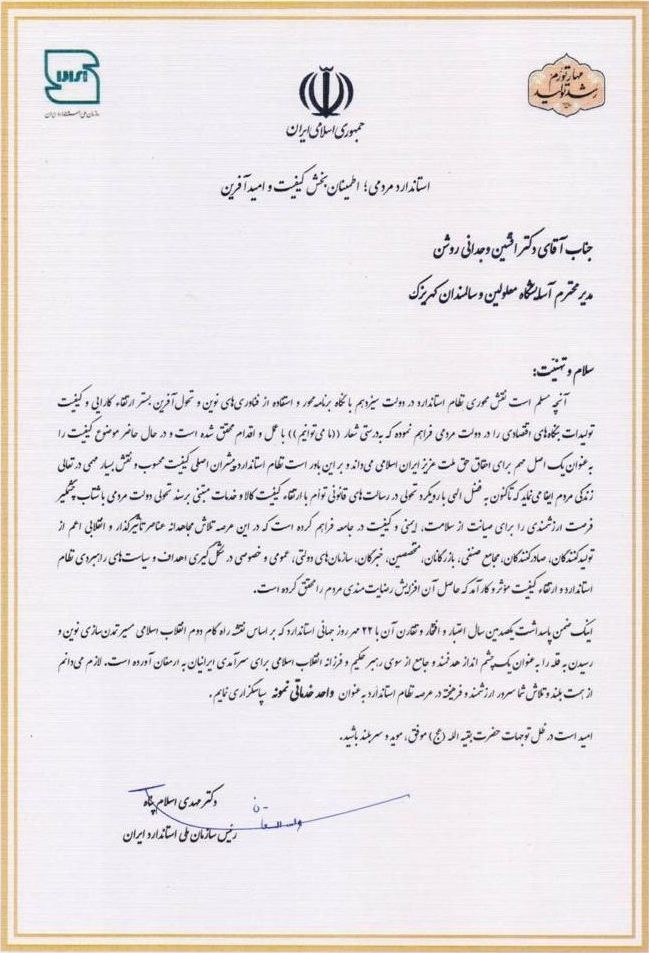 مهار تورم
رشد تولید
سازمان ملی استاندارد ایران
جمهوری اسلامی ایران
استاندارد مردمی؛ اطمینان بخش کیفیت و امیدآفرین
جناب آقای دکتر افشین وجدانی روشن
مدیر محترم آسایشگاه معلولین و سالمندان کهریزک
سلام و تهنیت؛
آنچه مسلم است نقش محوری نظام استاندارد در دولت سیزدهم با نگاه برنامه محور و استفاده از فناوری‌های نوین و تحول آفرین بستر ارتقاء کارایی و کیفیت
تولیدات بنگاه‌های اقتصادی را در دولت مردمی فراهم نموده که به‌درستی شعار ((ما می‌توانیم)) با عمل و اقدام محقق شده است و در حال حاضر موضوع کیفیت را
به عنوان یک اصل مهم برای احقاق حق ملت عزیز ایران اسلامی می‌داند و بر این باور است نظام استاندارد پیشران اصلی کیفیت محسوب و نقش بسیار مهمی در تعالی
زندگی مردم ایفا می‌نماید که تاکنون به فضل الهی با رویکرد تحولی در رسالت‌های قانونی توأم با ارتقاء کیفیت کالا و خدمات مبتنی بر سند تحولی دولت مردمی با شتاب چشمگیر
فرصت ارزشمندی را برای صیانت از سلامت، ایمنی و کیفیت در جامعه فراهم کرده است که در این عرصه تلاش مجاهدانه عناصر تأثیرگذار و انقلابی اعم از
تولیدکنندگان، صادرکنندگان، مجامع صنفی، بازرگانان، متخصصین، خبرگان، سازمان‌های دولتی، عمومی و خصوصی در شکل‌گیری اهداف و سیاست‌های راهبردی نظام
استاندارد و ارتقاء کیفیت مؤثر و کارآمد که حاصل آن افزایش رضایت مندی مردم را محقق کرده است.
اینک ضمن پاسداشت یکصدمین سال اعتبار و افتخار و تقارن آن با ۲۲ مهر روز جهانی استاندارد که بر اساس نقشه راه گام دوم انقلاب اسلامی مسیر تمدن سازی نوین و
رسیدن به قله را به عنوان یک چشم انداز هدفمند و جامع از سوی رهبر حکیم و فرزانه انقلاب اسلامی برای سرآمدی ایرانیان به ارمغان آورده است. لازم می‌دانم
از همت بلند و تلاش شما سرور ارزشمند و فرهیخته در عرصه نظام استاندارد به عنوان واحد خدماتی نمونه سپاسگزاری نمایم.
امید است در ظل توجهات حضرت بقیه الله (عج) موفق، موید و سربلند باشید.
دکتر مهدی اسلام پناه
رئیس سازمان ملی استاندارد ایران